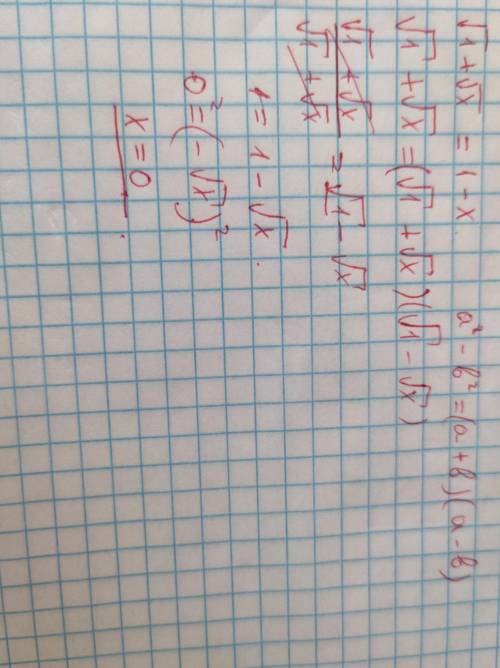 √1+√x = 1-x a²-b²=(a+b)(a-b)
√1+√x=(√1+√x)(√1-√x)
√1+√x/√1+√x = √1-√x
1=1-√x.
0²=(-√x)²
x=0.